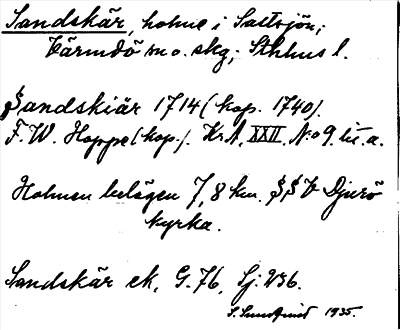 Sandskär, holme i Saltsjön;
Värmdö sn o. skg, Sthlms l.
Sandskiär 1714 (kop. 1740).
F. W. Hoppe (kop.). Kr.A, XXII, No 9. lit. a.
Holmen belägen 7,8 km. SSV Djurö
kyrka.
Sandskär ek, G. 76, Sj. 236.
S. Sundqvist 1935.